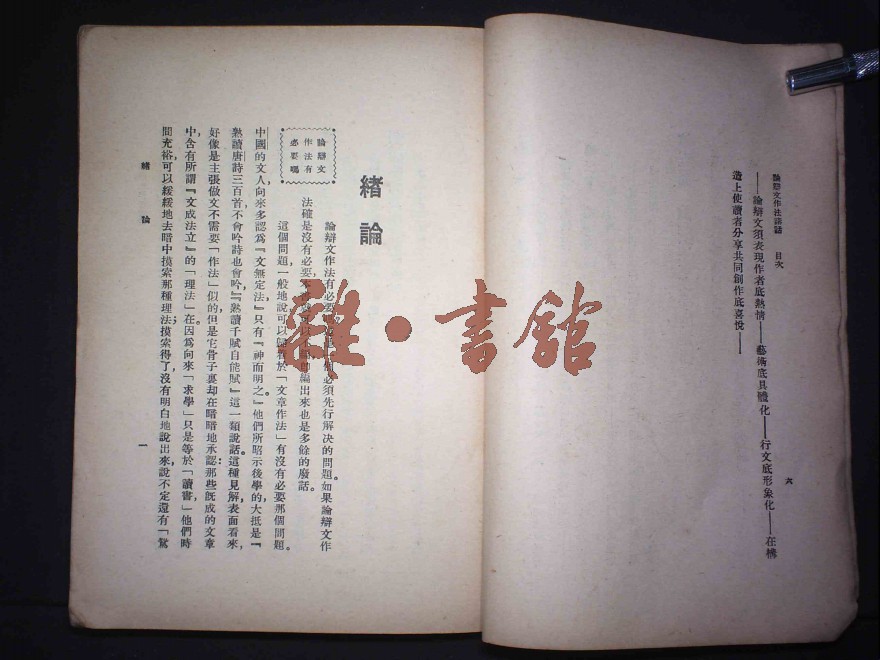 論辯文作法講話　目次　六
——論辯文須表現作者底熱情——藝術底具體化——行文底形象化——在構
造上使讀者分享共同創作底喜悅——
緒論
論辯文
作法有
必要嗎
論辯文作法有必要 必須先行解決的問題。如果論辯文作
法確是沒有必要， 編出來也是多餘的廢話。
這個問題，一般地說，可以歸 於「文章作法」有沒有必要那個問題。
中國的文人，向來多認爲『文無定法』，只有『神而明之』。他們所昭示後學的大抵是『
熟讀唐詩三百首，不會吟詩也會吟，』『熟讀千賦自能賦』這一類說話。這種見解，表面看來，
好像是主張做文不需要「作法」似的，但是它骨子裏却在暗暗地承認：那些既成的文章
中含有所謂『文成法立』的「理法」在。因爲向來「求學」只是等於「讀書，」他們時
間充裕，可以緩緩地去暗中摸索那種理法；摸索得了，沒有明白地說出來，說不定還有「鴛
緒論　一
雜·書館